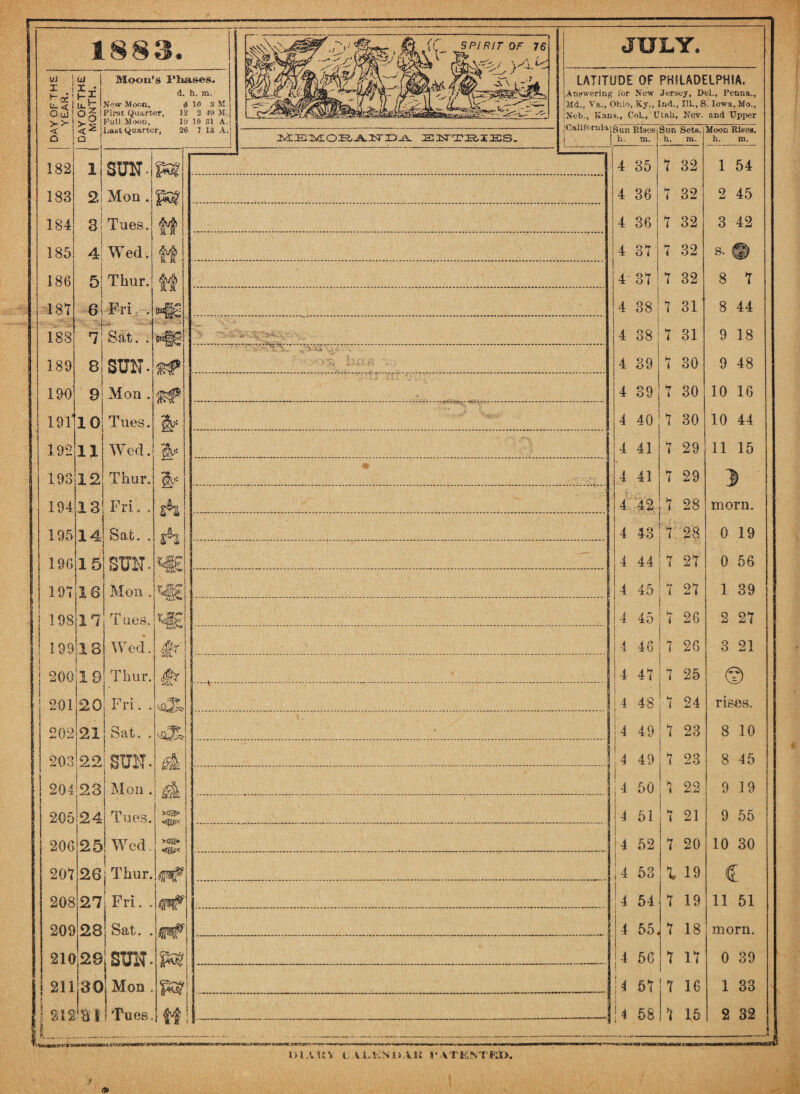 1883.
SPIRIT OF 76
JULY.
DAY OF THE YEAR.
DAY OF THE MONTH.
Moon's Phases.
d. h. m.
New Moon, 4 10 3 M.
First Quarter, 12 2 49 M.
Full Moon, 19 10 31 A.
Last Quarter, 26 7 13 A.
MEMORANDA ENTRIES.
LATITUDE OF PHILADELPHIA.
Answering for New Jersey, Del., Penna.,
Md., Va., Ohio, Ky., Ind., Ill., S. Iowa, Mo.,
Neb., Kans., Col., Utah, Nev. and Upper
California
Sun Rises Sun Sets. Moon Rises.
h. m. h. m. h. m.
182 1 SUN. 4 35 7 32 1 54
183 2 Mon. 4 36 7 32 2 45
184 3 Tues. 4 36 7 32 3 42
185 4 Wed. 4 37 7 32 s.
186 5 Thur. 4 37 7 32 8 7
187 6 Fri. . 4 38 7 31 8 44
188 7 Sat. . 4 38 7 31 9 18
189 8 SUN. 4 39 7 30 9 48
190 9 Mon. 4 39 7 30 10 16
191 10 Tues. 4 40 7 30 10 44
192 11 Wed. 4 41 7 29 11 15
193 12 Thur. 4 41 7 29
194 13 Fri. . 4 42 7 28 morn.
195 14 Sat. . 4 43 7 28 0 19
196 15 SUN. 4 44 7 27 0 56
197 16 Mon. 4 45 7 27 1 39
198 17 Tues. 4 45 7 26 2 27
199 18 Wed. 4 46 7 26 3 21
200 19 Thur. 4 47 7 25
201 20 Fri. . 4 48 7 24 rises.
202 21 Sat. . 4 49 7 23 8 10
203 22 SUN. 4 49 7 23 8 45
204 23 Mon. 4 50 7 22 9 19
205 24 Tues. 4 51 7 21 9 55
206 25 Wed. 4 52 7 20 10 30
207 26 Thur. 4 53 7 19
208 27 Fri. . 4 54 7 19 11 51
209 28 Sat. . 4 55 7 18 morn.
210 29 SUN. 4 56 7 17 0 39
211 30 Mon. 4 57 7 16 1 33
212 31 Tues. 4 58 7 15 2 32
DIARY CALENDAR PATENTED.